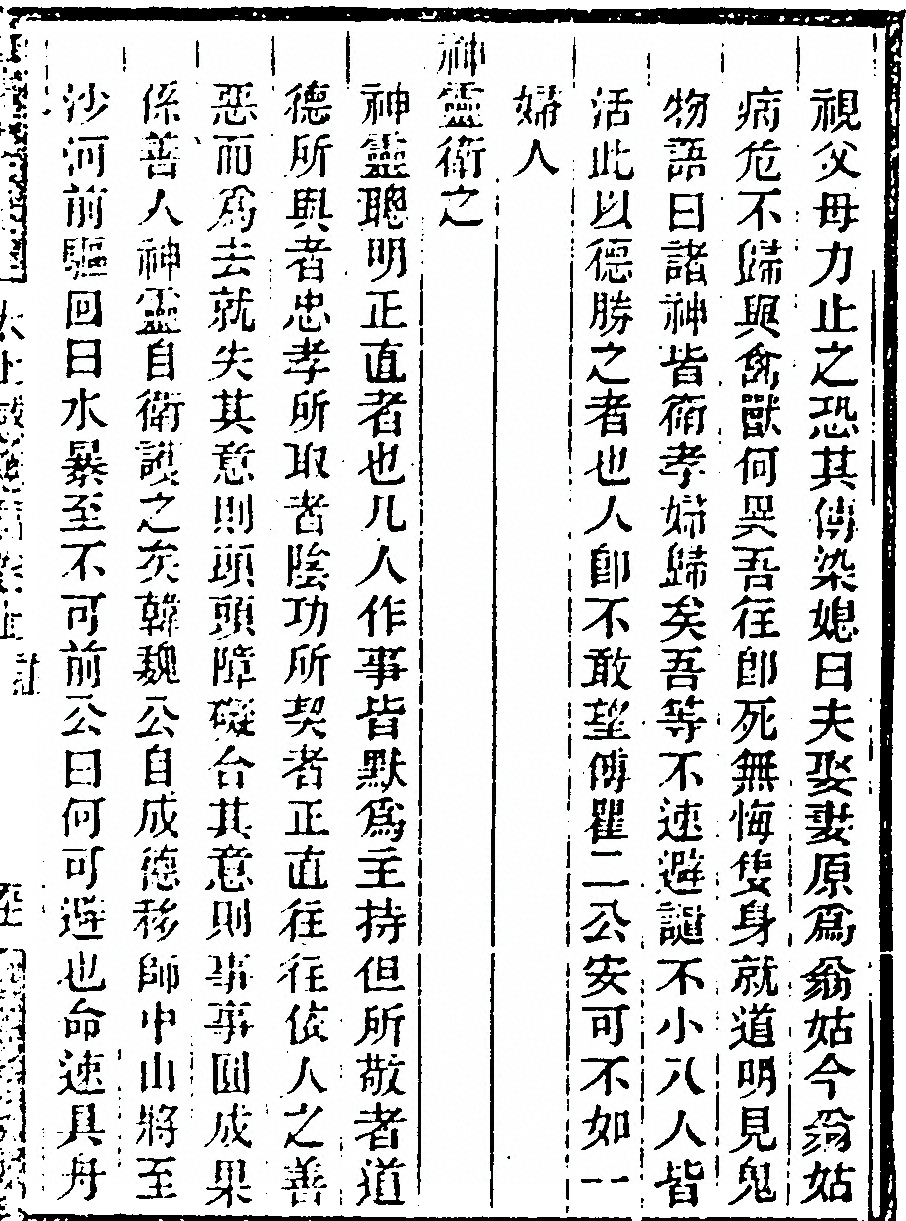 視父母力止之恐其傳染媳曰夫娶妻原爲翁姑今翁姑
病危不歸與禽獸何異吾往卽死無悔隻身就道明見鬼
物語曰諸神皆衛孝婦歸矣吾等不速避譴不小八人皆
活此以德勝之者也人卽不敢望傅瞿二公安可不如一
婦人
神靈衛之
神靈聰明正直者也凡人作事皆默爲主持但所敬者道
德所與者忠孝所取者陰功所契者正直往往依人之善
惡而爲去就失其意則頭頭障礙合其意則事事圓成果
係善人神靈自衛護之矣韓魏公自成德移師中山將至
沙河前驅回曰水暴至不可前公曰何可避也命速具舟
太上感應篇